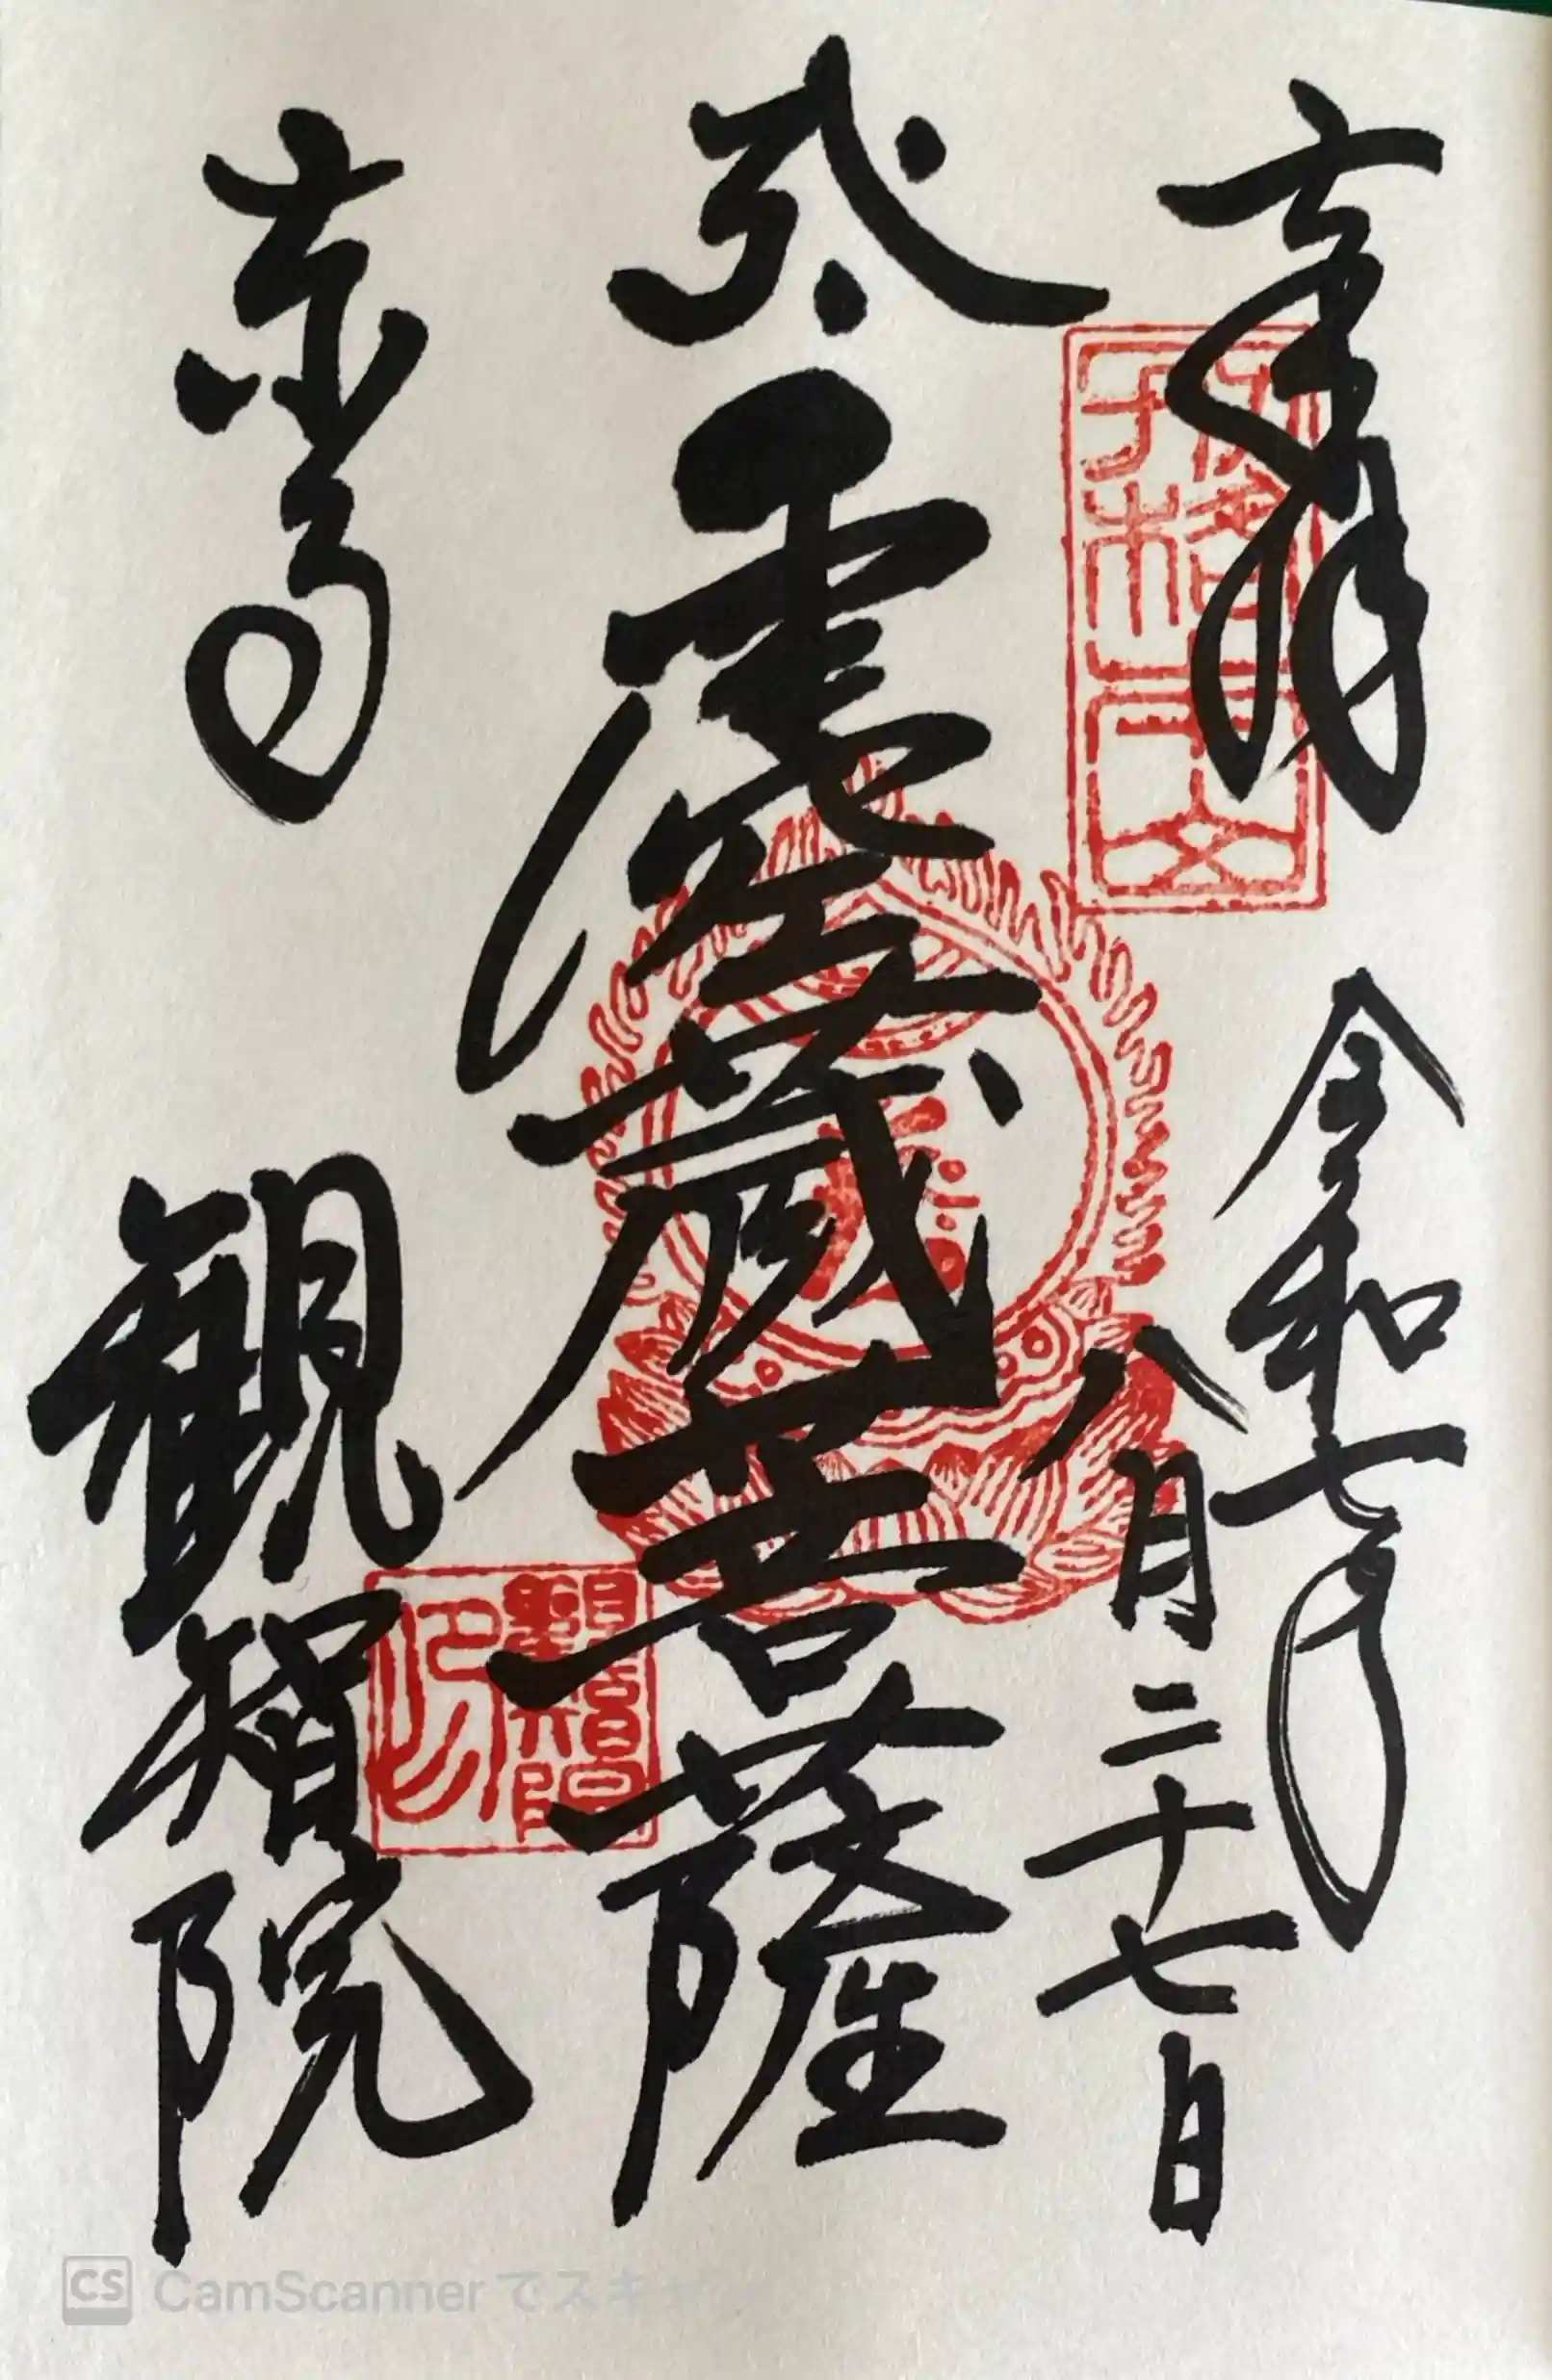 奉拝
令和七年
八月二十七日
虚空蔵菩薩
東寺
観智院
観智院印
CamScannerでスキャン